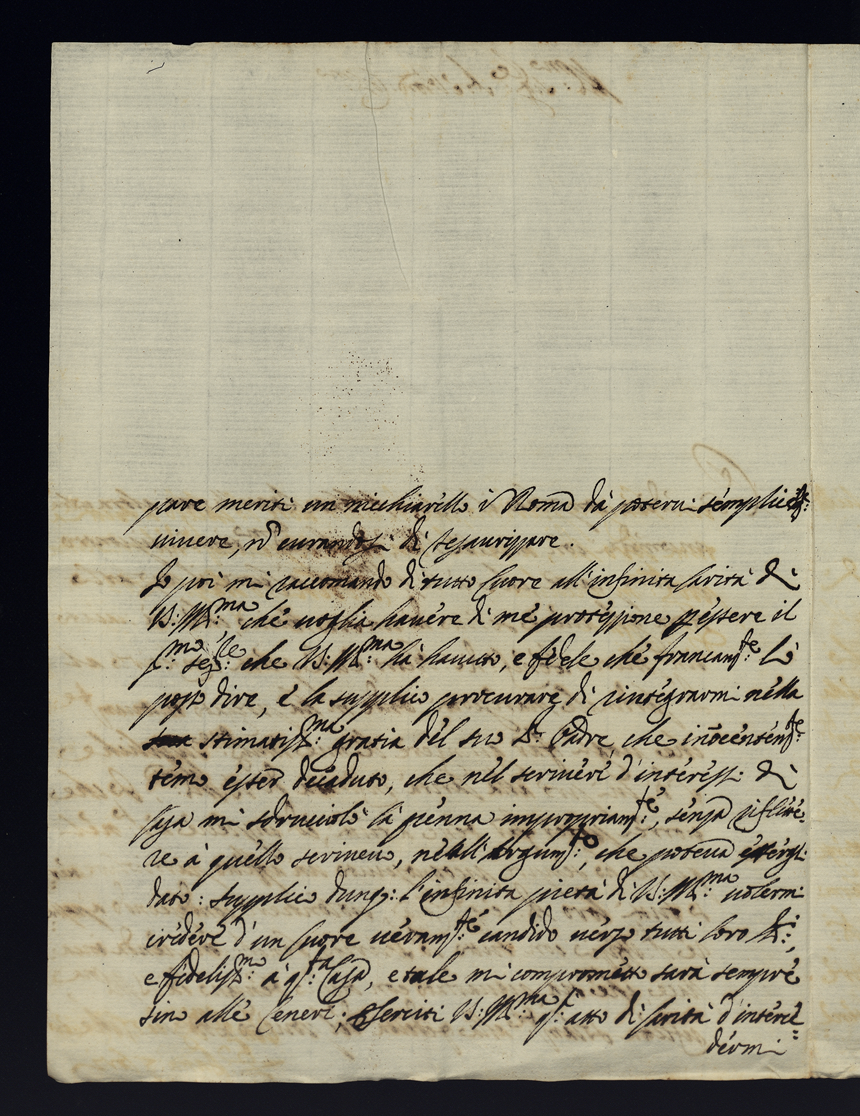 pare meriti un nicchiarello i Roma da poterui semplicem.te
uiuere, nō curandosi di tesaurizzare.
Io poi mi raccomando di tutto cuore all'infinita carità di
V: M:ma che uoglia hauere di me protezzione p essere il
che V: M:ma hà hauuto, e fidele che francam:te lo
posso dire, e la supplico procurare di rintegrarmi nella
stimatiss:ma gratia del suo S:r Padre, che inocentem:te
temo esser decaduto, che nel scriuere d'interessi di
casa mi sdrucciolò la penna impropriam:te, senza riflete-
re à quello scriueuo, nell'argum:to, che poteua
dato: supplico dunq: l'infinita pietà di V: M:ma uolermi
credere d'un cuore ueram:te candido uerso tutti loro S:ri,
e fideliss:mo à q:ta Casa, e tale mi comprometto sarà sempre
sino alle ceneri; Eserciti V: M:ma q:to atto di carità d'interce-
dermi